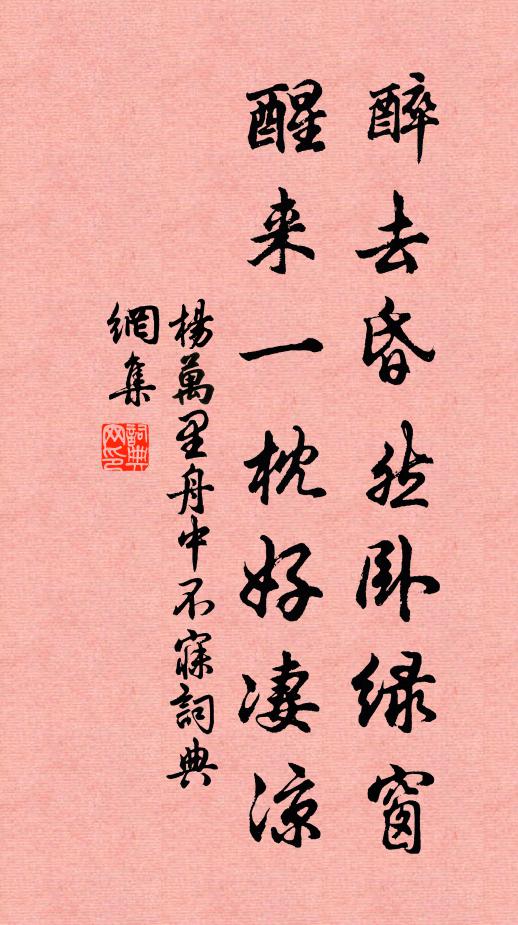 醉去昏然卧绿窗
醒来一枕好凄凉
楊萬里舟中不寐詞典
網集
詞典
网印